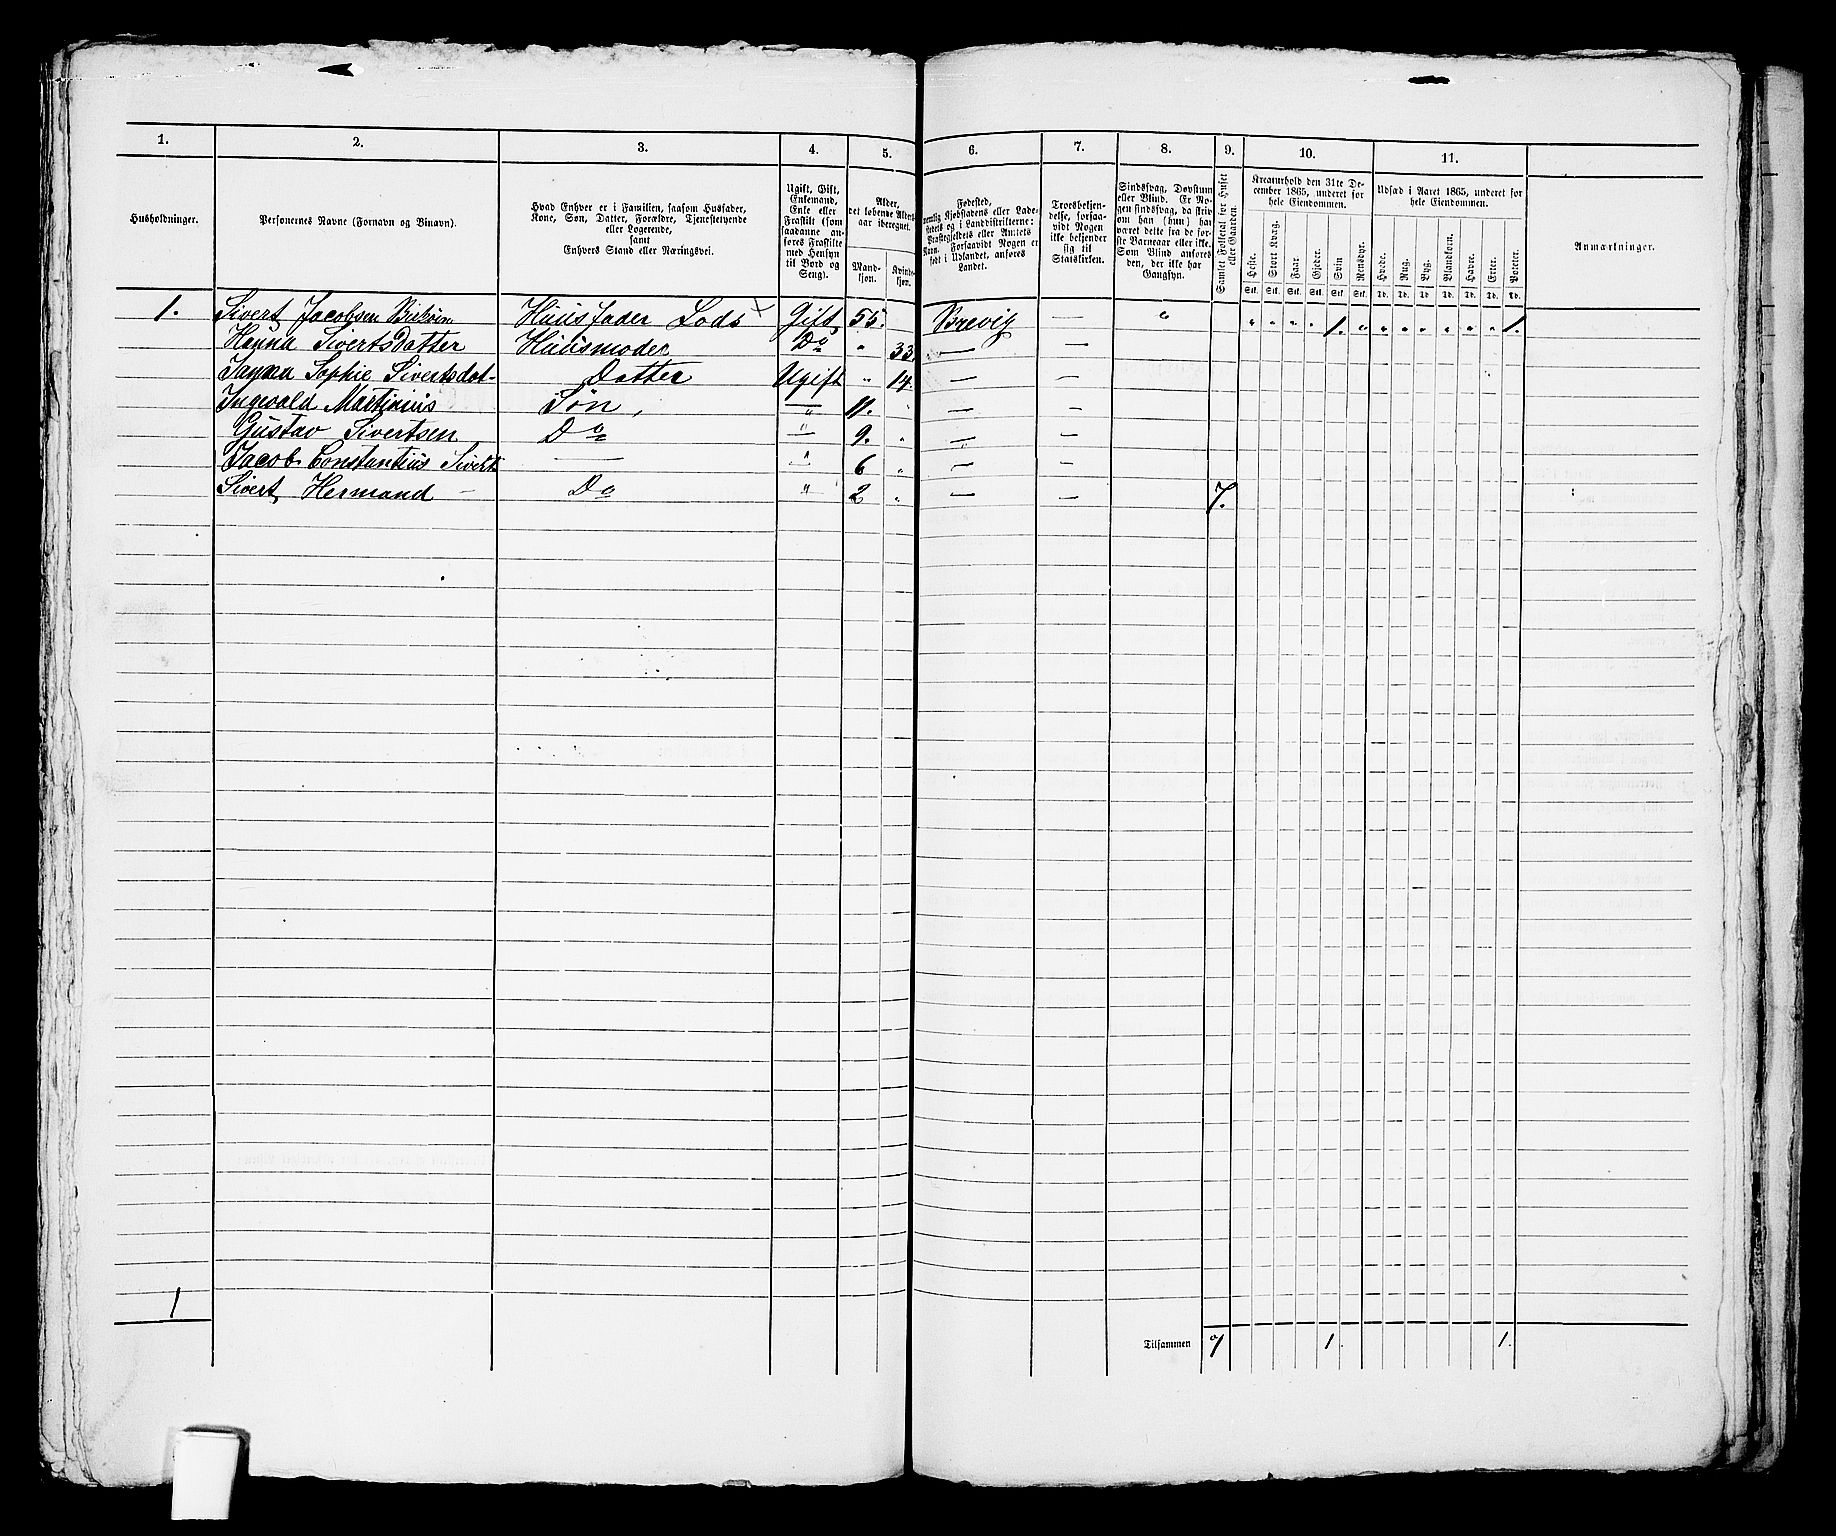 1. 2. 3. 4. 5. 6. 7. 8. 9. 10. 11.
Husholdninger.
Personernes Navne (Fornavn og Binavn).
Hvad Enhver er i Familien, saasom Husfader,
Kone, Søn, Datter, Forældre, Tjenstetyende
eller Logerende,
samt
Enhvers Stand eller Næringsvei.
Ugift, Gift,
Enkemand,
Enke eller
Fraskilt (som
saadanne an-
føres Fraskilte
med Hensyn
til Bord og
Seng).
Alder,
det løbende Alders-
aar iberegnet.
Mand-
kjøn.
Kvinde-
kjøn.
Fødested,
nemlig Kjøbstadens eller Lade-
stedets og i Landdistrikterne:
Præstegjeldets eller Amtets
Navn. Forsaavidt Nogen er
født i Udlandet, anføres
Landet.
Troesbekjen-
delse, forsaa-
vidt Nogen
ikke bekjender
sig til
Statskirken.
Sindssvag, Døvstum
eller Blind. Er No-
gen sindssvag, da skriv
om han (hun) har
været dette fra de før-
ste Barneaar eller ikke.
Som Blind anføres
den, der ikke har
Gangsyn.
Samlet Folketal for Huset
eller Gaarden.
Kreaturhold den 31te De-
cember 1865, underet for
hele Eiendommen.
Heste. Stort Kvæg. Faar. Gjeder. Svin Rensdyr.
Stk. Stk. Stk. Stk. Stk. Stk.
Udsæd i Aaret 1865, underet for
hele Eiendommen.
Hvede. Rug. Byg. Blandkorn. Havre. Erter. Poteter.
Td. Td. Td. Td. Td. Td. Td.
Anmærkninger.
1. Sivert Jacobsen Huusfader Lods Gift 55. Brevig — " " " " " 1. " " " " " " " 1.
Hanna Sivertsdatter Huusmoder Do " 33. — —
Sophie Sivertsdat- Datter Ugift " 14. — —
Ingevald Martinius Søn, " 11. " — —
Gustav Sivertsen Do " 9. " — —
Jacob Constantius Sivert — " 6 " — —
Sivert Hermand — Do " 2 " — — 7.
1
Tilsammen 7 1. 1.